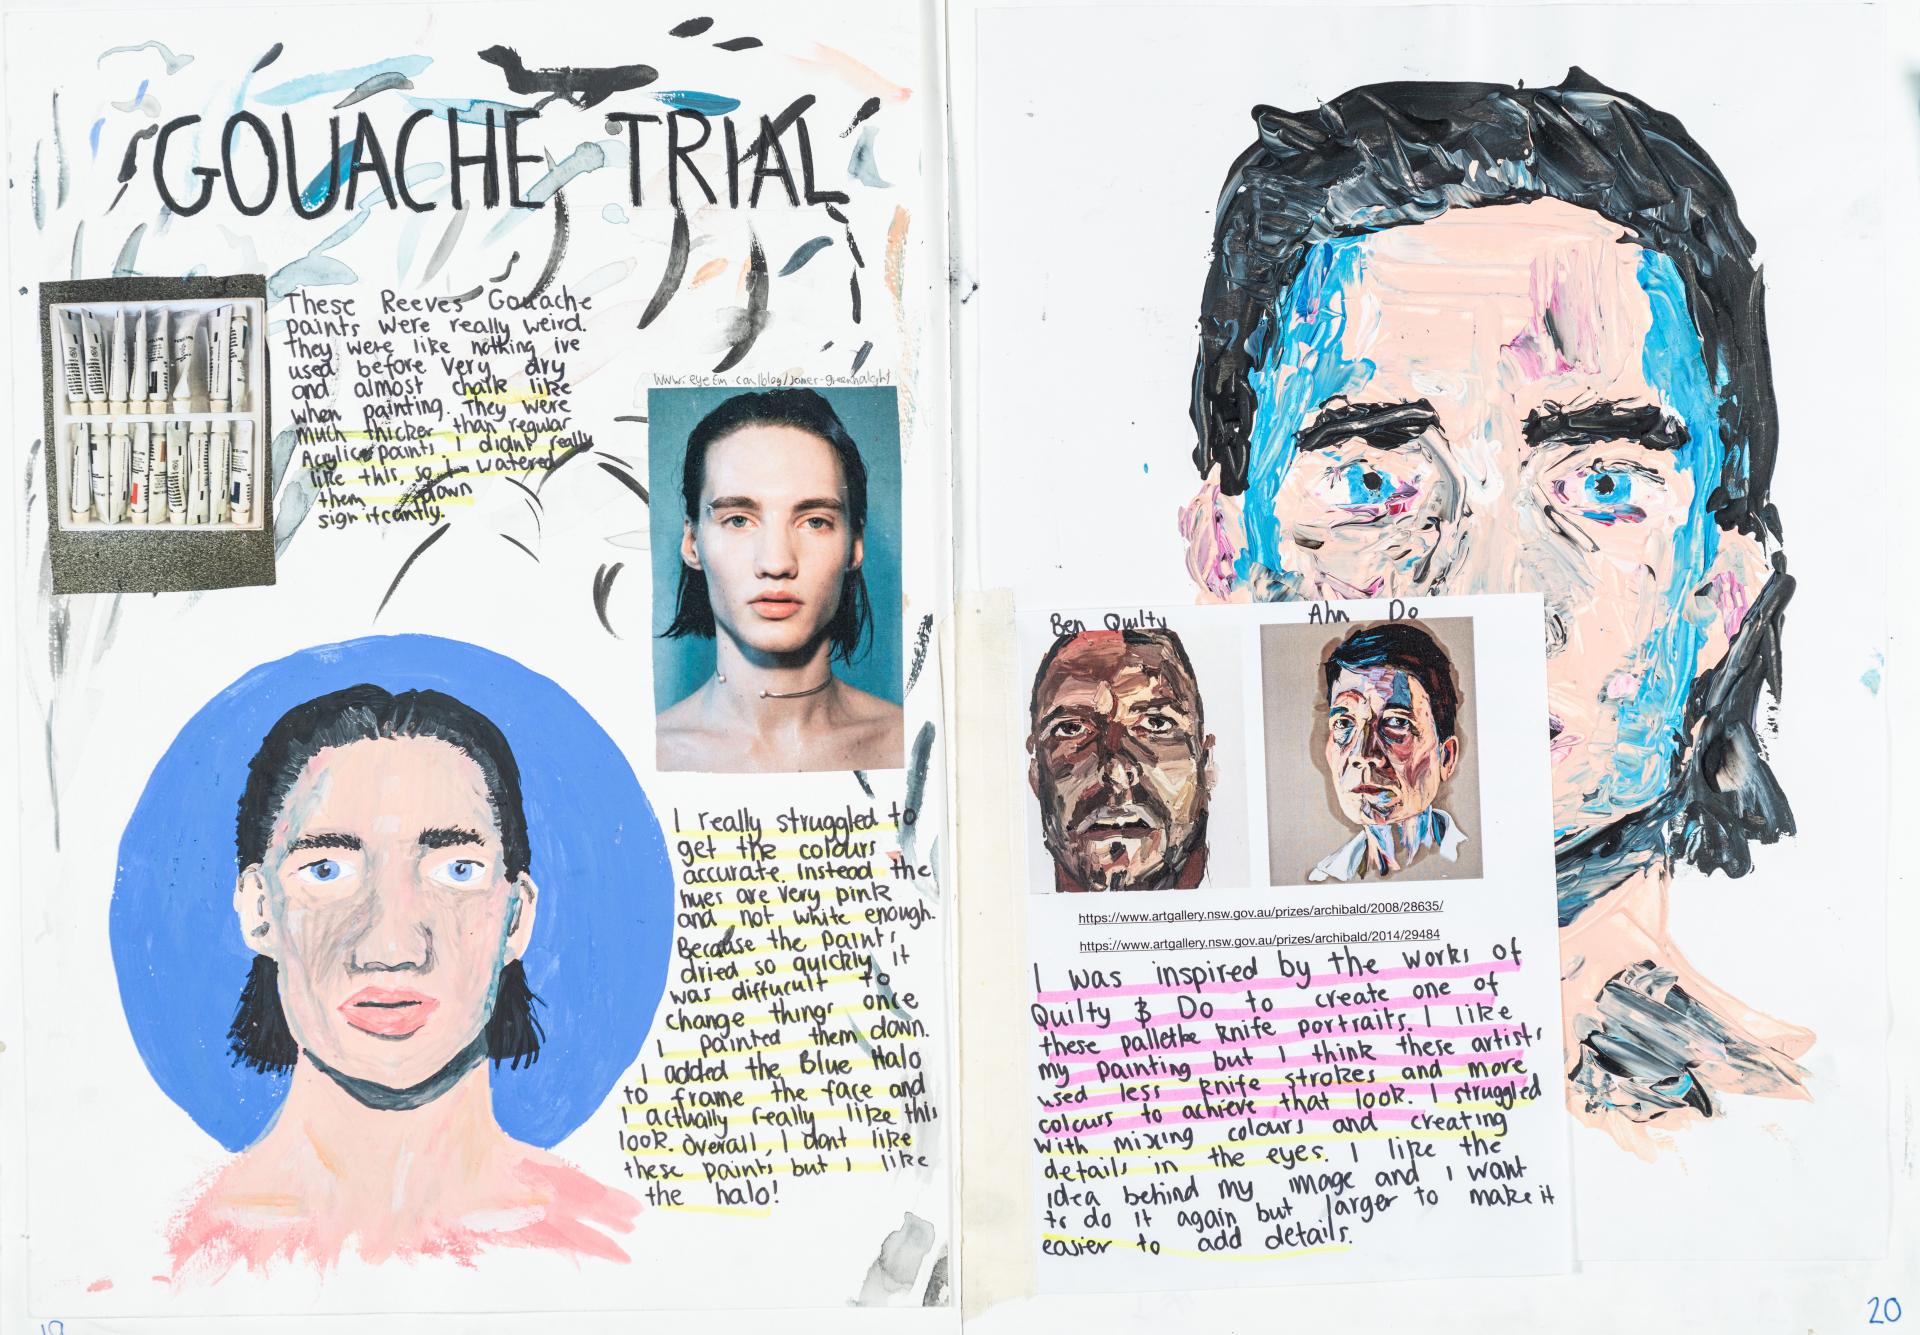 GOUACHE TRIAL
These Reeves Gouache
paints were really weird.
They were like nothing ive
used before Very dry
and almost chalk like
when painting. They were
much thicker than regular
Acrylic paints. I didnt really
like this, so I watered
them down
significantly.
I really struggled to
get the colours
accurate. Instead the
hues are very pink
and not white enough.
Because the paints
dried so quickly it
was diffucult to
change things once
I painted them down.
I added the Blue Halo
to frame the face and
I actually really like this
look. Overall, I dont like
these paints but I like
the halo!
19
Ben Quilty
Ahn Do
https://www.artgallery.nsw.gov.au/prizes/archibald/2008/28635/
https://www.artgallery.nsw.gov.au/prizes/archibald/2014/29484
I was inspired by the works of
Quilty & Do to create one of
these palletke knife portraits. I like
my painting but I think these artists
used less knife strokes and more
colours to achieve that look. I struggled
with mixing colours and creating
details in the eyes. I like the
idea behind my image and I want
to do it again but larger to make it
easier to add details.
20